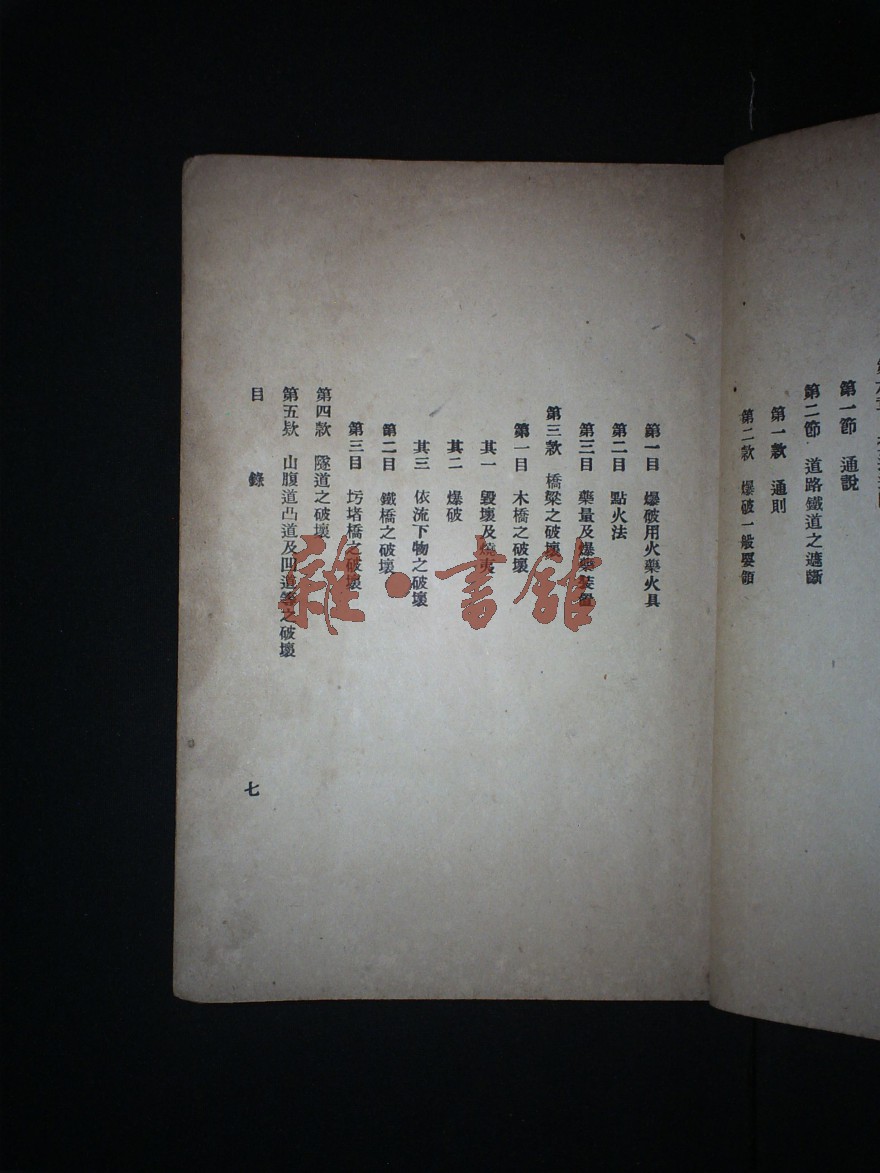 第一節　通說
第二節　道路鐵道之遮斷
第一款　通則
第二款　爆破一般要領
第一目　爆破用火藥火具
第二目　點火法
第三目　藥量及爆藥裝置
第三款　橋梁之破壞
第一目　木橋之破壞
其一　毀壞及燒夷
其二　爆破
其三　依流下物之破壞
第二目　鐵橋之破壞
第三目　圬堵橋之破壞
第四款　隧道之破壞
第五欵　山腹道凸道及凹道等之破壞
目　錄
七
雜·書館